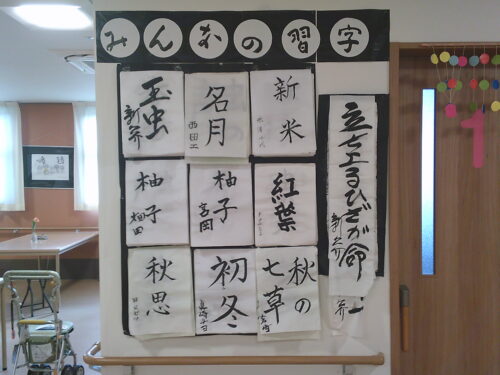 みんなの習字
玉虫
新介
名月
西田工
新米
柚子
柚田
柚子
宮岡
紅葉
秋思
初冬
秋の七草
立ち上るひざが命
新之介